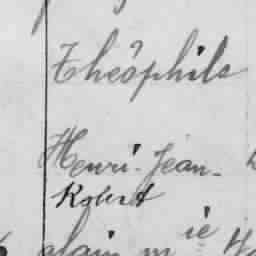 Théophile
Henri-Jean-
Robert